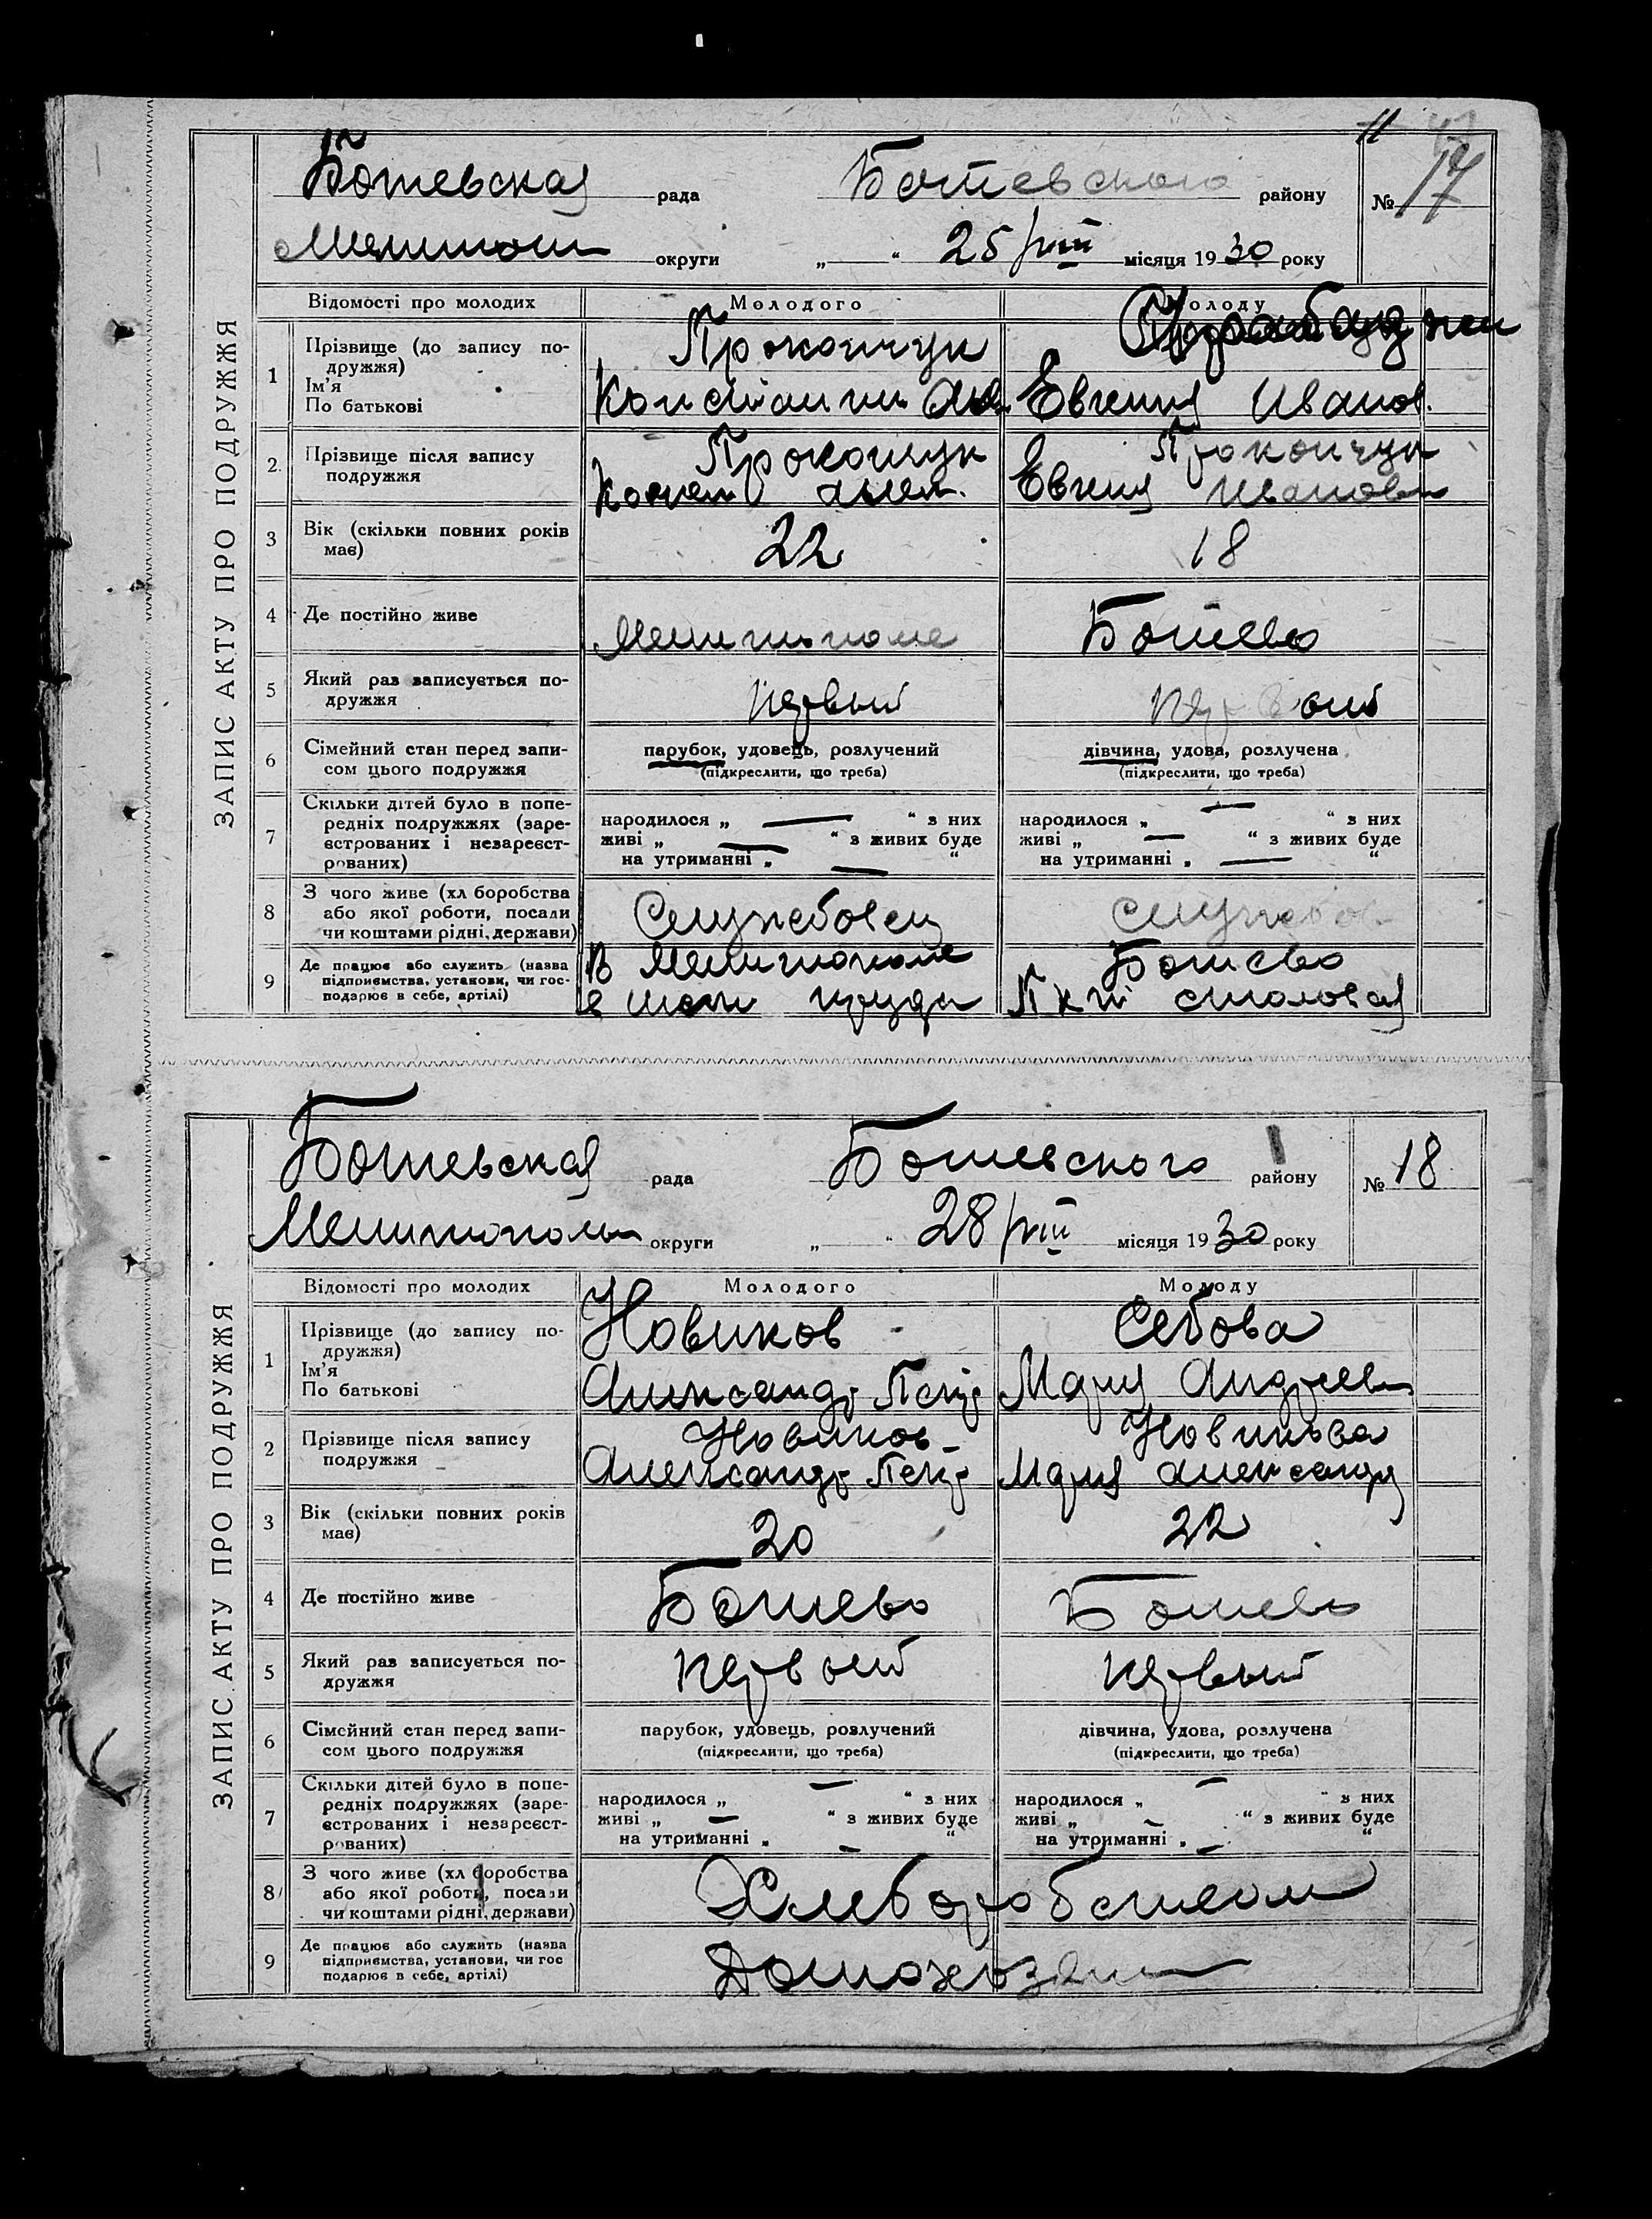 11
Ботевская рада Ботевского району № 17
округи „ “ 25/VIII місяця 1930 року
ЗАПИС АКТУ ПРО ПОДРУЖЖЯ
Відомості про молодих Молодого Молоду
1 Прізвище (до запису по-
дружжя)
Ім'я
По батькові
Прокопчук
Евгения Иванов.
2 Прізвище після запису
подружжя
Прокопчук Прокопчук
Евгения Иванов
3 Вік (скільки повних років
має)
22 18
4 Де постійно живе
Мелитополе Ботево
5 Який раз записується по-
дружжя
первый первый
6 Сімейний стан перед запи-
сом цього подружжя
парубок, удовець, розлучений дівчина, удова, розлучена
(підкреслити, що треба) (підкреслити, що треба)
7 Скільки дітей було в попе-
редніх подружжях (заре-
єстрованих і незареєст-
рованих)
народилося „ — “ з них народилося „ — “ з них
живі „ — “ з живих буде живі „ — “ з живих буде
на утриманні „ — “ на утриманні „ — “
8 З чого живе (хл боробства
або якої роботи, посади
чи коштами рідні, держави)
Служебовец служебов
9 Де працює або служить (назва
підприємства, установи, чи гос-
подарює в себе, артілі)
В Мелитополе Ботево
столовая
Ботевская рада Ботевского району № 18
Мелитополь округи „ “ 28/VIII місяця 1930 року
ЗАПИС АКТУ ПРО ПОДРУЖЖЯ
Відомості про молодих Молодого Молоду
1 Прізвище (до запису по-
дружжя)
Ім'я
По батькові
Новиков Себова
Александр Петр Мария Андреев
2 Прізвище після запису
подружжя
Новиков Новикова
Александр Петр Мария Александр
3 Вік (скільки повних років
має)
20 22
4 Де постійно живе
Ботево Ботево
5 Який раз записується по-
дружжя
первый первый
6 Сімейний стан перед запи-
сом цього подружжя
парубок, удовець, розлучений дівчина, удова, розлучена
(підкреслити, що треба) (підкреслити, що треба)
7 Скільки дітей було в попе-
редніх подружжях (заре-
єстрованих і незареєст-
рованих)
народилося „ — “ з них народилося „ — “ з них
живі „ — “ з живих буде живі „ — “ з живих буде
на утриманні „ — “ на утриманні „ — “
8 З чого живе (хл боробства
або якої роботи, посади
чи коштами рідні, держави)
Хлеборобством
9 Де працює або служить (назва
підприємства, установи, чи гос
подарює в себе, артілі)